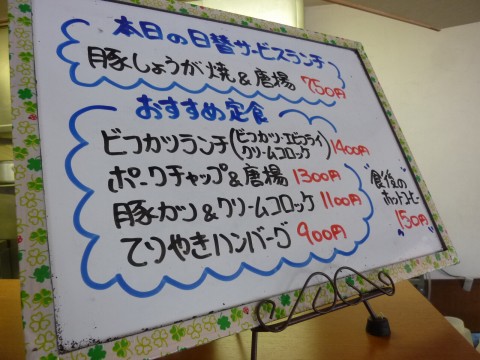 本日の日替サービスランチ
豚しょうが焼&唐揚 750円
おすすめ定食
ビフカツランチ(ビフカツ・エビフライ
クリームコロッケ) 1400円
ポークチャップ&唐揚 1300円
豚カツ&クリームコロッケ 1100円
てりやきハンバーグ 900円
"食後の
ホットコーヒー
150円"